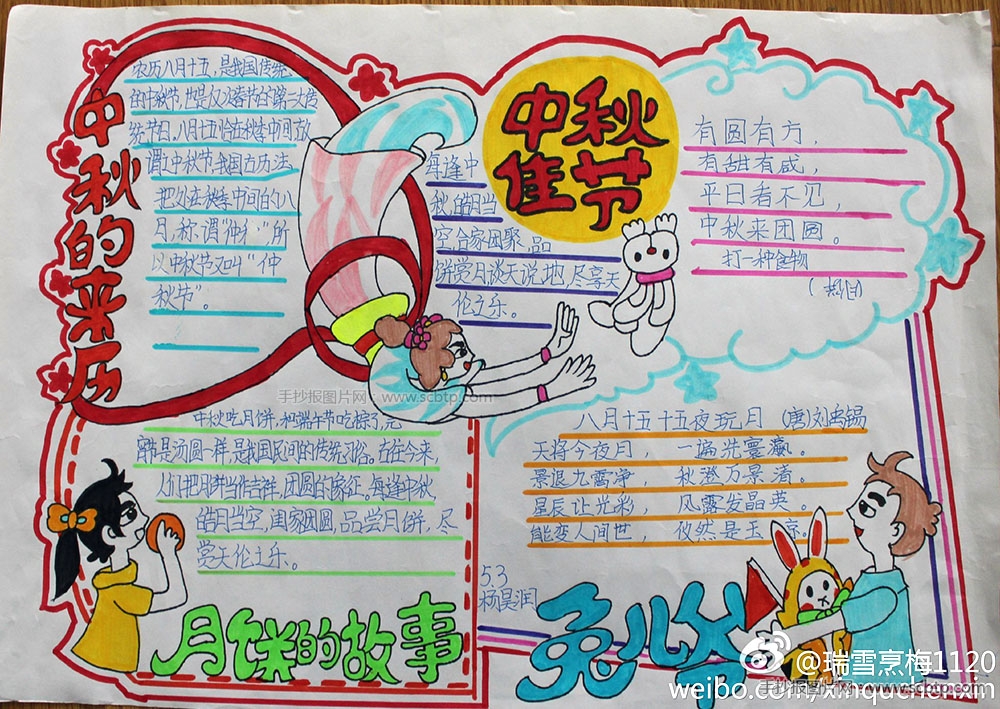 中秋的来历
农历八月十五，是我国传统
的中秋节，也是仅次春节的第二大传
统节日。八月十五恰在秋季中间，故
谓之中秋节。我国古历法
把处在秋季中间的八
月，称谓“仲秋”，所
以中秋节又叫“仲
秋节”。
中秋
佳节
每逢中
秋，皓月当
空合家团聚，品
饼赏月，谈天说地，尽享天
伦之乐。
有圆有方，
有甜有咸，
平日看不见，
中秋来团圆。
打一种食物
手抄报图片网：www.scbtp.com
中秋吃月饼，和端午节吃粽子，元
宵节是汤圆一样，是我国民间的传统习俗。古往今来，
人们把月饼当作吉祥，团圆的象征。每逢中秋，
皓月当空，阖家团圆，品尝月饼，尽
赏天伦之乐。
月饼的故事
八月十五十五夜玩月 （唐）刘禹锡
天将今夜月，一遍洗寰瀛。
暑退九霄净，秋澄万景清。
星辰让光彩，风露发晶英。
能变人间世，攸然是玉京。
5.3
杨昊润
兔儿爷
@瑞雪烹梅1120
weibo.com/xinquchenxin
手抄报图片网：www.scbtp.com